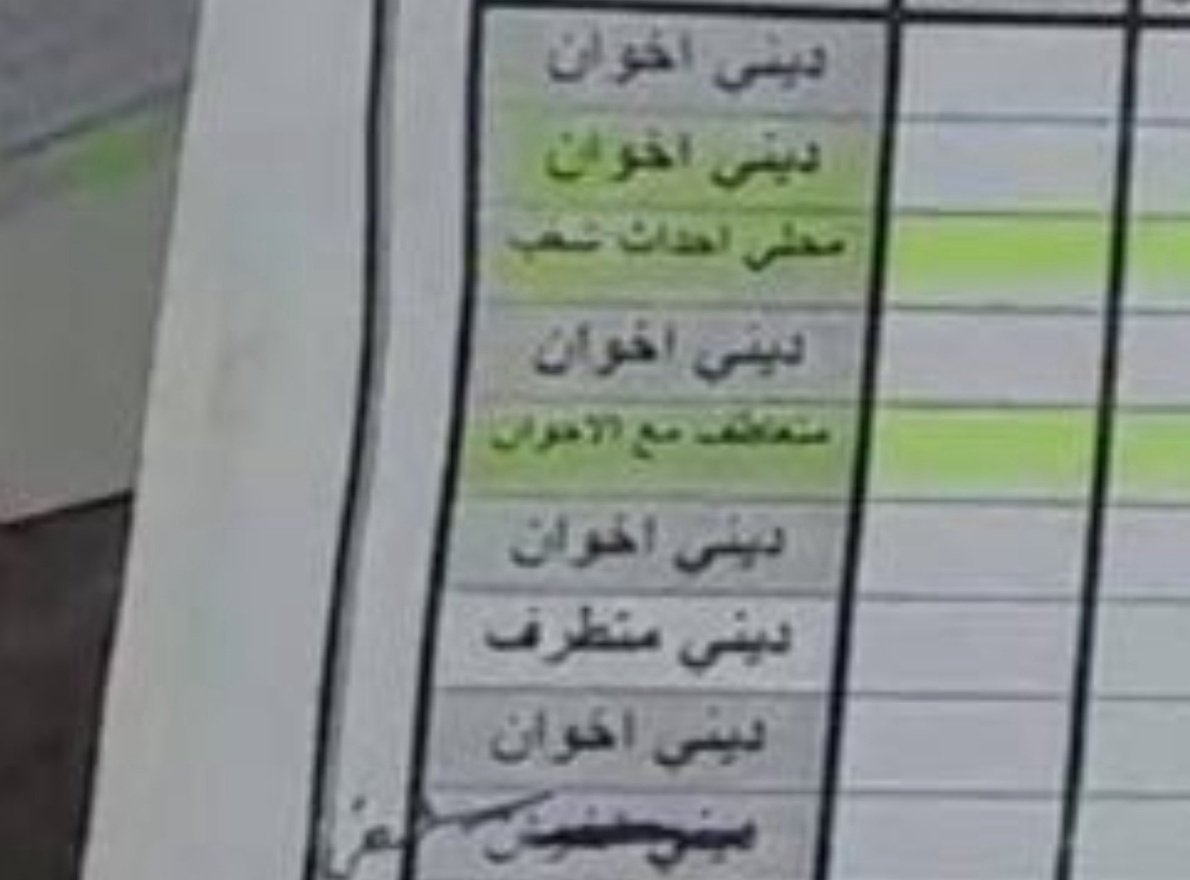 ديني اخوان
ديني اخوان
محلي احداث شغب
ديني اخوان
متعاطف مع الاخوان
ديني اخوان
ديني متطرف
ديني اخوان